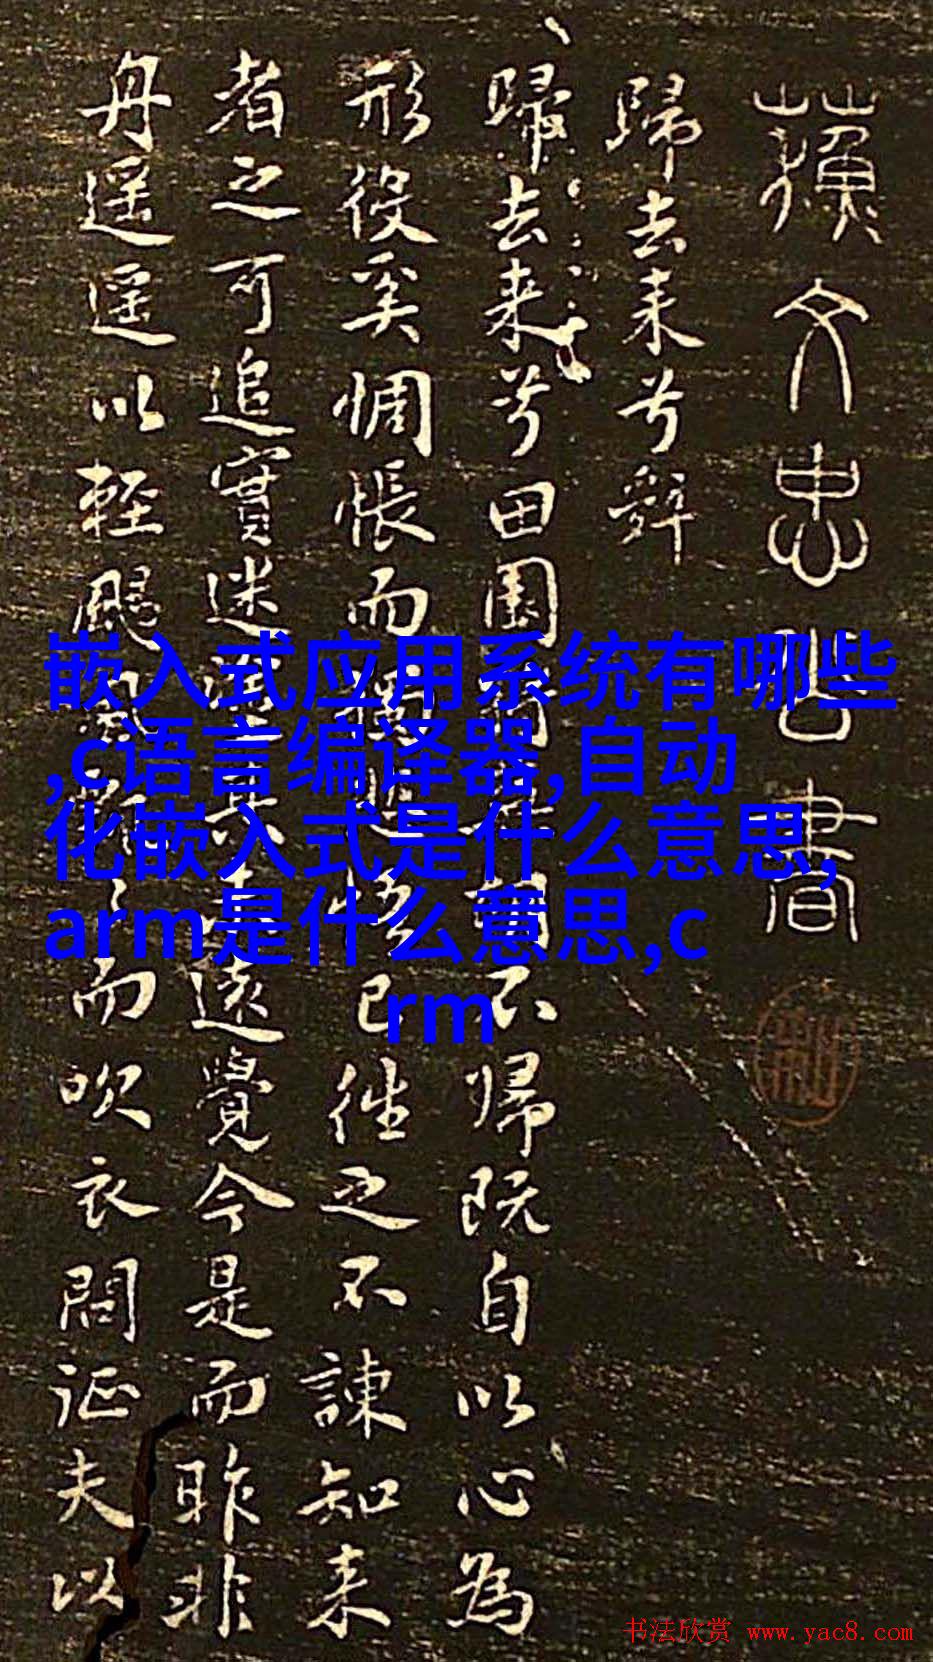 蘓文忠公書
歸去来兮辭
歸去来兮田園将蕪胡不帰既自以心為
形役奚惆悵而獨悲悟已往之不諫知来
者之可追實迷途其未遠覺今是而昨非
舟遥遥以輕颺風飄飄而吹衣問征夫以
嵌入式应用系统有哪些
,c语言编译器,自动
化嵌入式是什么意思,
arm是什么意思,c
rm
书法欣赏 www.yac8.com